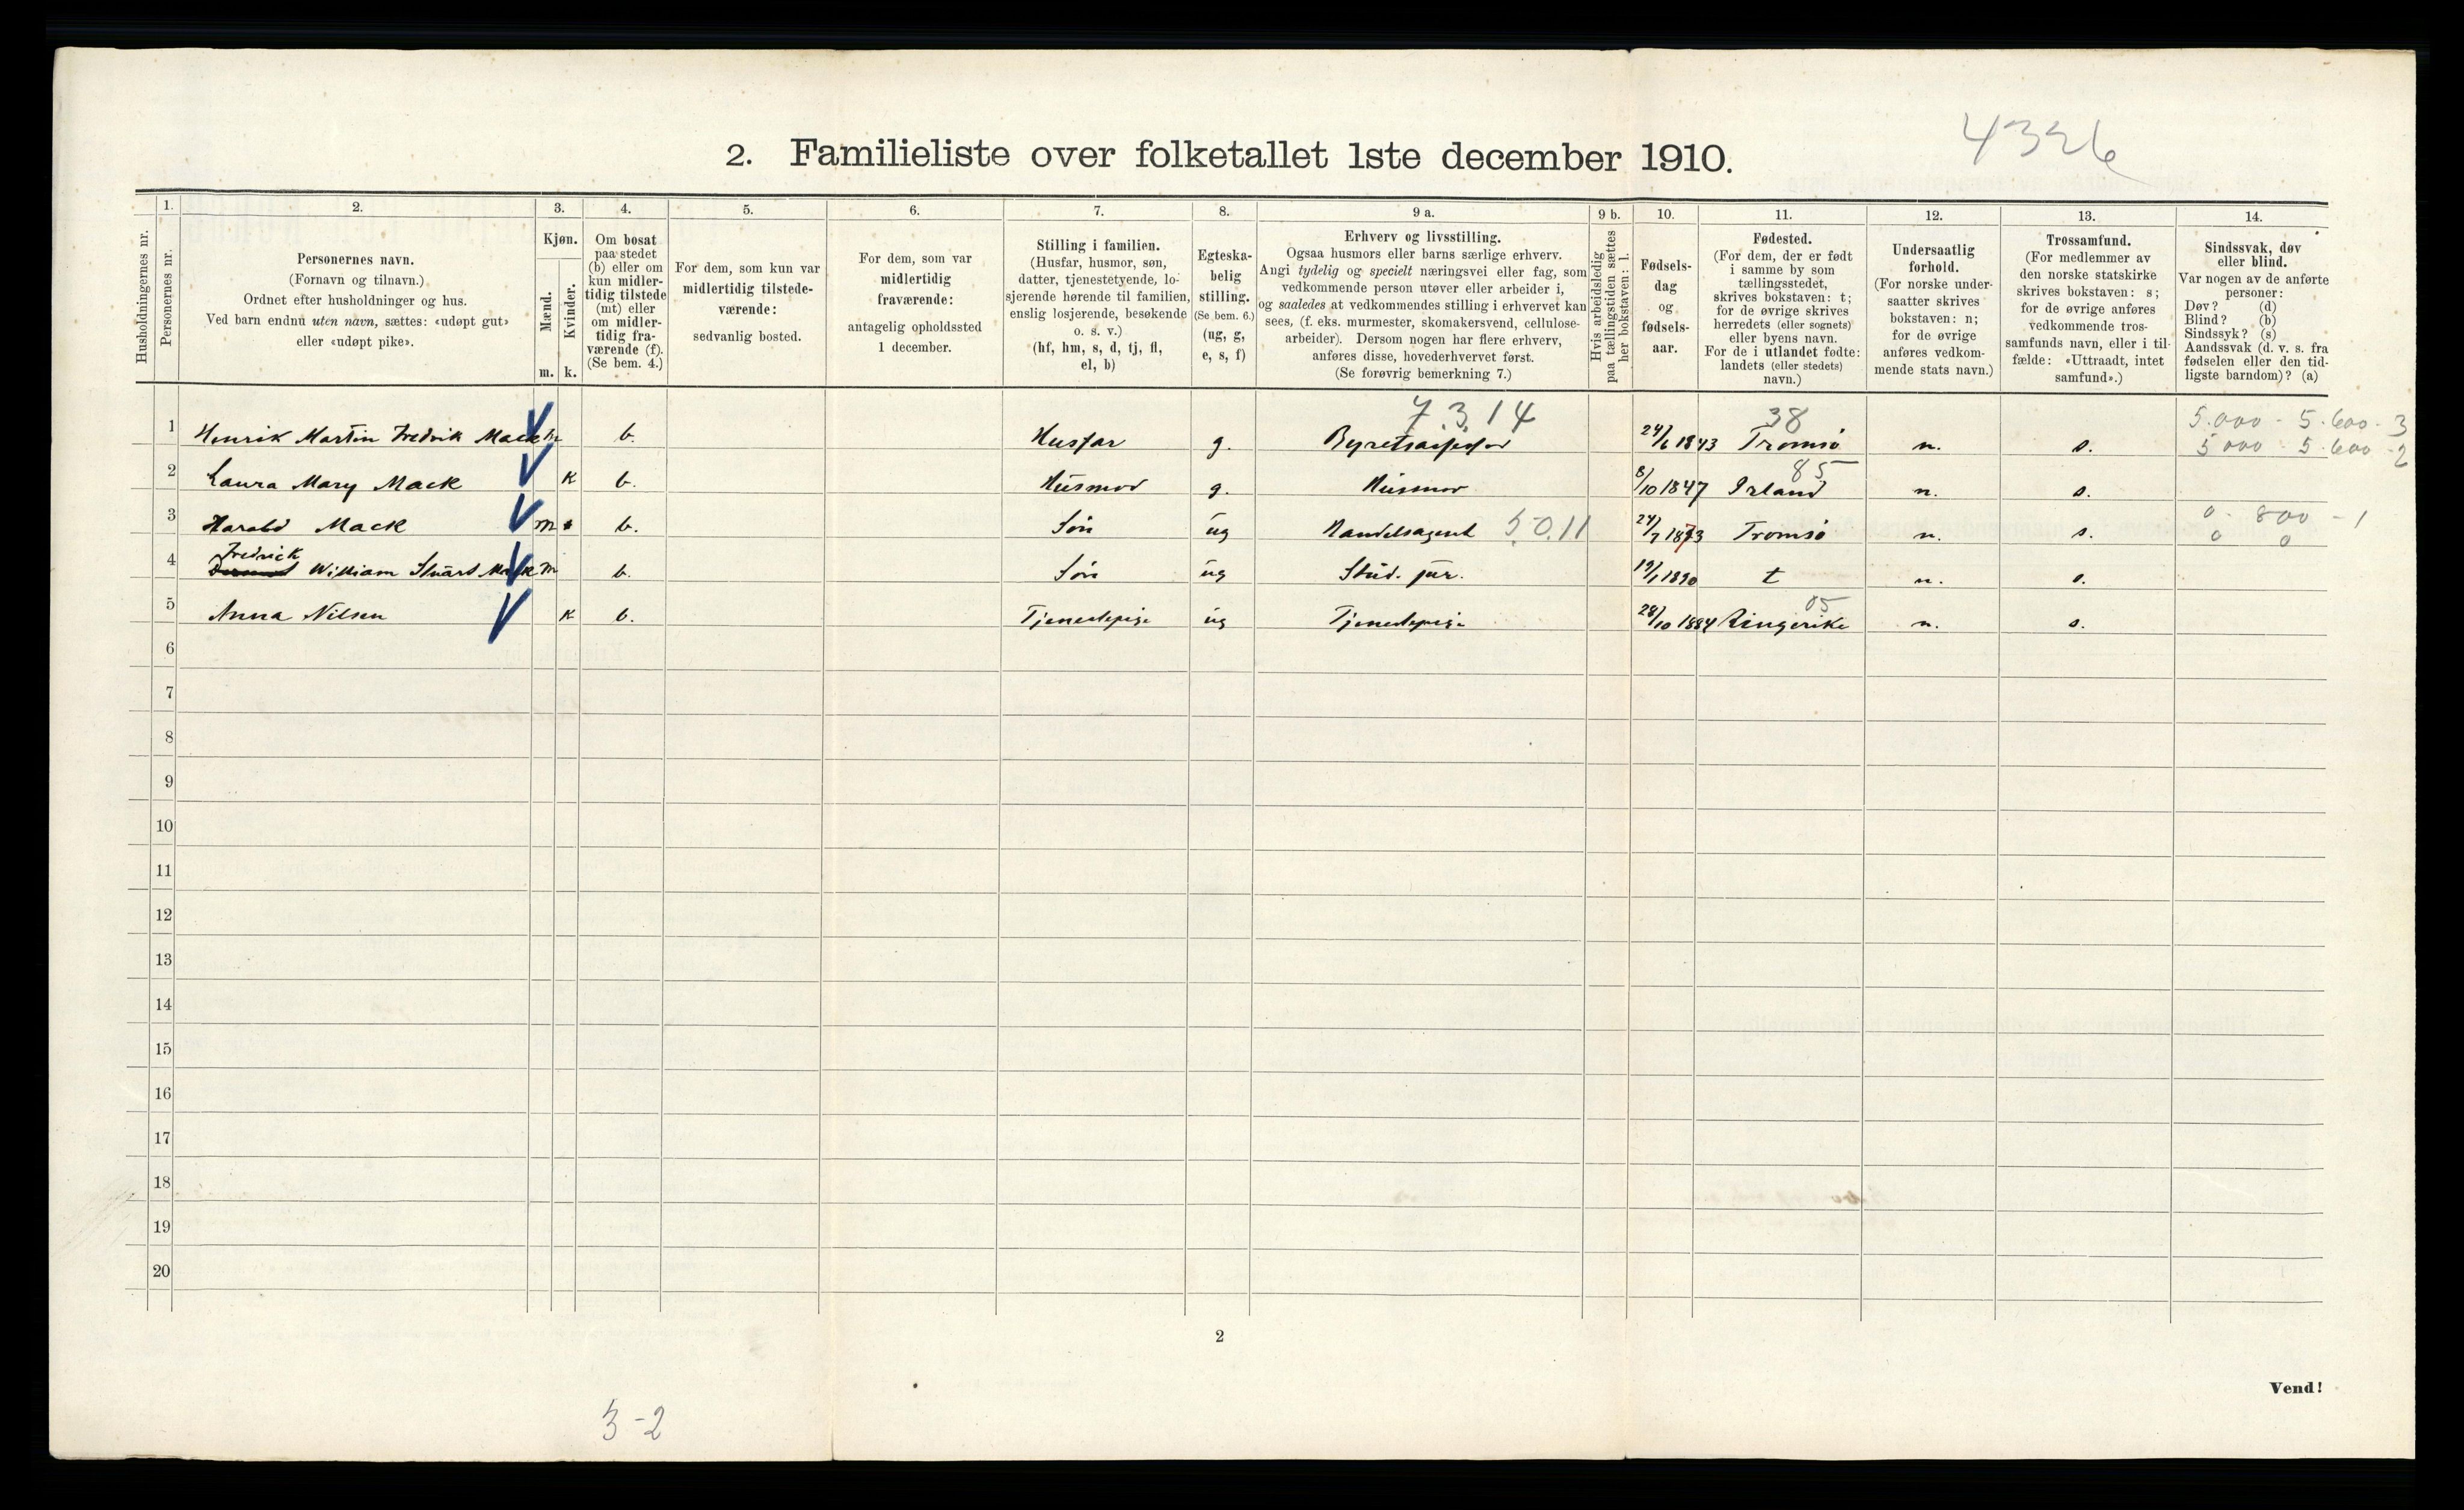 4326
2. Familieliste over folketallet 1ste december 1910.
Husholdningernes nr.
1. Personernes nr.
2. Personernes navn. (Fornavn og tilnavn.) Ordnet efter husholdninger og hus. Ved barn endnu uten navn, sættes: «udøpt gut» eller «udøpt pike».
3. Kjøn. Mænd. m. Kvinder. k.
4. Om bosat paa stedet (b) eller om kun midlertidig tilstede (mt) eller om midlertidig fraværende (f). (Se bem. 4.)
5. For dem, som kun var midlertidig tilstedeværende: sedvanlig bosted.
6. For dem, som var midlertidig fraværende: antagelig opholdssted 1 december.
7. Stilling i familien. (Husfar, husmor, søn, datter, tjenestetyende, losjerende hørende til familien, enslig losjerende, besøkende o. s. v.) (hf, hm, s, d, tj, fl, el, b)
8. Egteskabelig stilling. (Se bem. 6.) (ug, g, e, s, f)
9 a. Erhverv og livsstilling. Ogsaa husmors eller barns særlige erhverv. Angi tydelig og specielt næringsvei eller fag, som vedkommende person utøver eller arbeider i, og saaledes at vedkommendes stilling i erhvervet kan sees, (f. eks. murmester, skomakersvend, cellulosearbeider). Dersom nogen har flere erhverv, anføres disse, hovederhvervet først. (Se forøvrig bemerkning 7.)
9 b. Hvis arbeidsledig paa tællingstiden sættes her bokstaven: l.
10. Fødselsdag og fødselsaar.
11. Fødested. (For dem, der er født i samme by som tællingsstedet, skrives bokstaven: t; for de øvrige skrives herredets (eller sognets) eller byens navn. For de i utlandet fødte: landets (eller stedets) navn.)
12. Undersaatlig forhold. (For norske undersaatter skrives bokstaven: n; for de øvrige anføres vedkommende stats navn.)
13. Trossamfund. (For medlemmer av den norske statskirke skrives bokstaven: s; for de øvrige anføres vedkommende trossamfunds navn, eller i tilfælde: «Uttraadt, intet samfund».)
14. Sindssvak, døv eller blind. Var nogen av de anførte personer: Døv? (d) Blind? (b) Sindssyk? (s) Aandssvak (d. v. s. fra fødselen eller den tidligste barndom)? (a)
7.3.14 38 5.000 - 5.600 - 3
1 Henrik Martin Fredrik Mack m b. Husfar g. Byretsassessor 24/6 1843 Tromsø n. s. 5000 - 5.600 - 2
85
2 Laura Mary Mack k b. Husmor g. Husmor 8/10 1847 Irland n. s.
0 - 800 - 1
3 Harald Mack m b. Søn ug Handelsagent 5.0.11 24/7 1873 Tromsø n. s. 0 0
Fredrick
4 William Stuart Mack m b. Søn ug Stud. jur. 19/1 1890 t n. s.
05
5 Anna Nilsen k b. Tjenestepige ug Tjenestepige 28/10 1884 Ringerike n. s.
6
7
8
9
10
11
12
13
14
15
16
17
18
19
20
2
Vend!
3-2